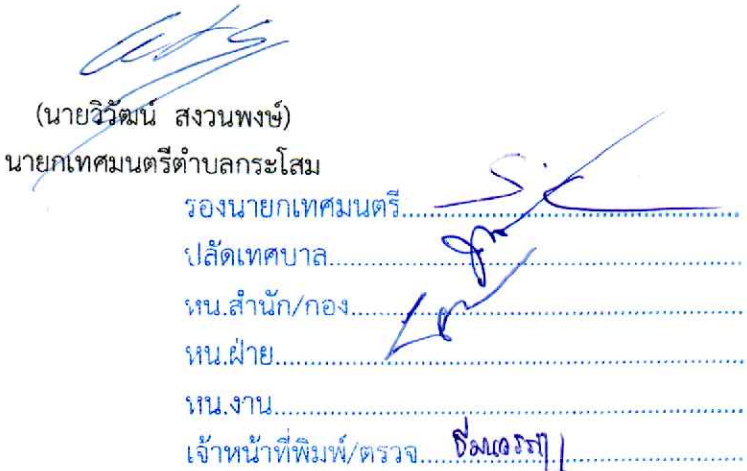 (นายวิวัฒน์ สงวนพงษ์)
นายกเทศมนตรีตำบลกระโสม
รองนายกเทศมนตรี
ปลัดเทศบาล
หน.สำนัก/กอง
หน.ฝ่าย
หน.งาน
เจ้าหน้าที่พิมพ์/ตรวจ